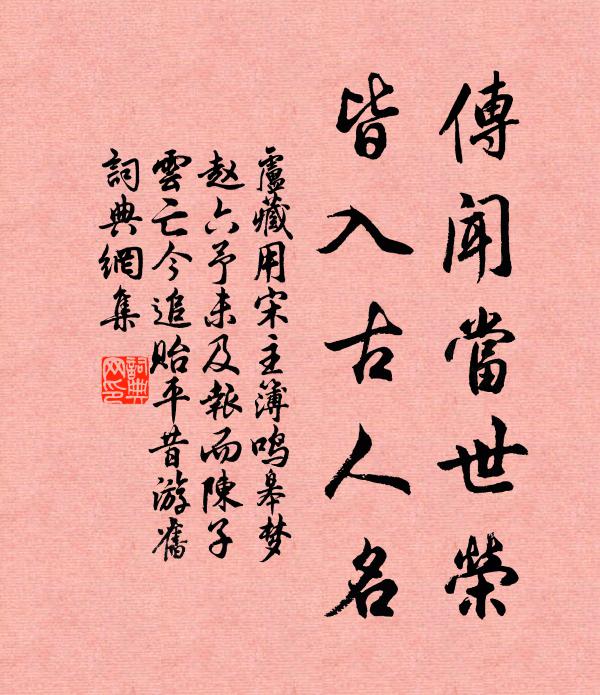 傳聞當世榮
皆入古人名
盧藏用宋主簿鳴皋梦
赵六予未及報而陳子
雲亡今追貽平昔游舊
詞典網集
詞典
网印